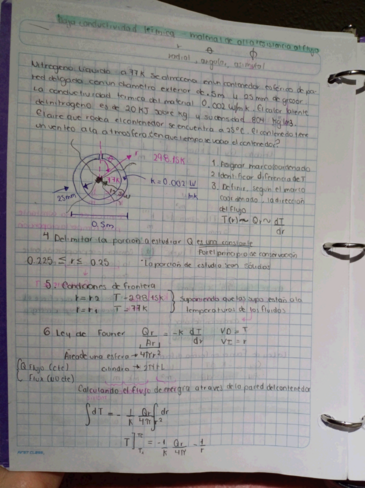 Baja conductividad térmica - material de alta resistencia al flujo
r θ φ
radial, angular, azimutal
Nitrógeno líquido a 77K se almacena en un contenedor esférico de pared delgada con un diámetro exterior de .5m y 25mm de grosor.
La conductividad térmica del material 0.002 W/mK. El calor latente
del nitrógeno es de 20 kJ sobre kg y su densidad 804 kg/m3.
El aire que rodea el contenedor se encuentra a 25°C. El contenedor tiene
un venteo a la atmósfera. ¿En qué tiempo se vacía el contenedor?
298.15K
77K
k = 0.002 W/mK
25mm
0.5m
1. Asignar marco coordenado
2. Identificar diferencia de T
3. Definir, según el marco
coordenado, la dirección
del flujo
T(r) ~ Qr ~ dT/dr
4. Delimitar la porción a estudiar. Q es una constante
Por el principio de conservación
0.225 ≤ r ≤ 0.25 *la porción de estudio son sólidos
5. Condiciones de frontera
r = r2 T = 298.15K
r = r1 T = 77K
Suponiendo que las capas están a la
temperatura de los fluidos
6. Ley de Fourier Qr/Ar = -k dT/dr VD = T
VI = r
Área de una esfera → 4πr²
cilindro → 2πrL
Q flujo (cte)
Calculando el flujo de energía a través de la pared del contenedor
∫dT = - 1/k Qr/4π ∫dr/r²
T] = -1/k Qr/4π - 1/r